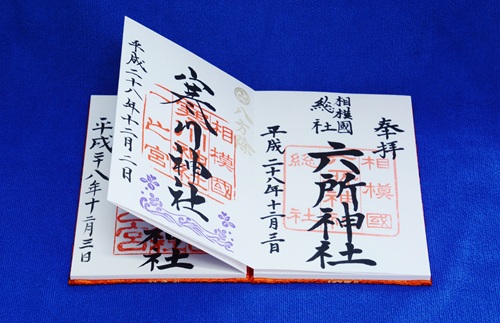 奉拝
相模國
総社
六所神社
平成二十八年十二月三日
相模國
総社
八方除
寒川神社
相模國
一之宮
平成二十八年十二月二日
神社
之宮
平成二十八年十二月三日